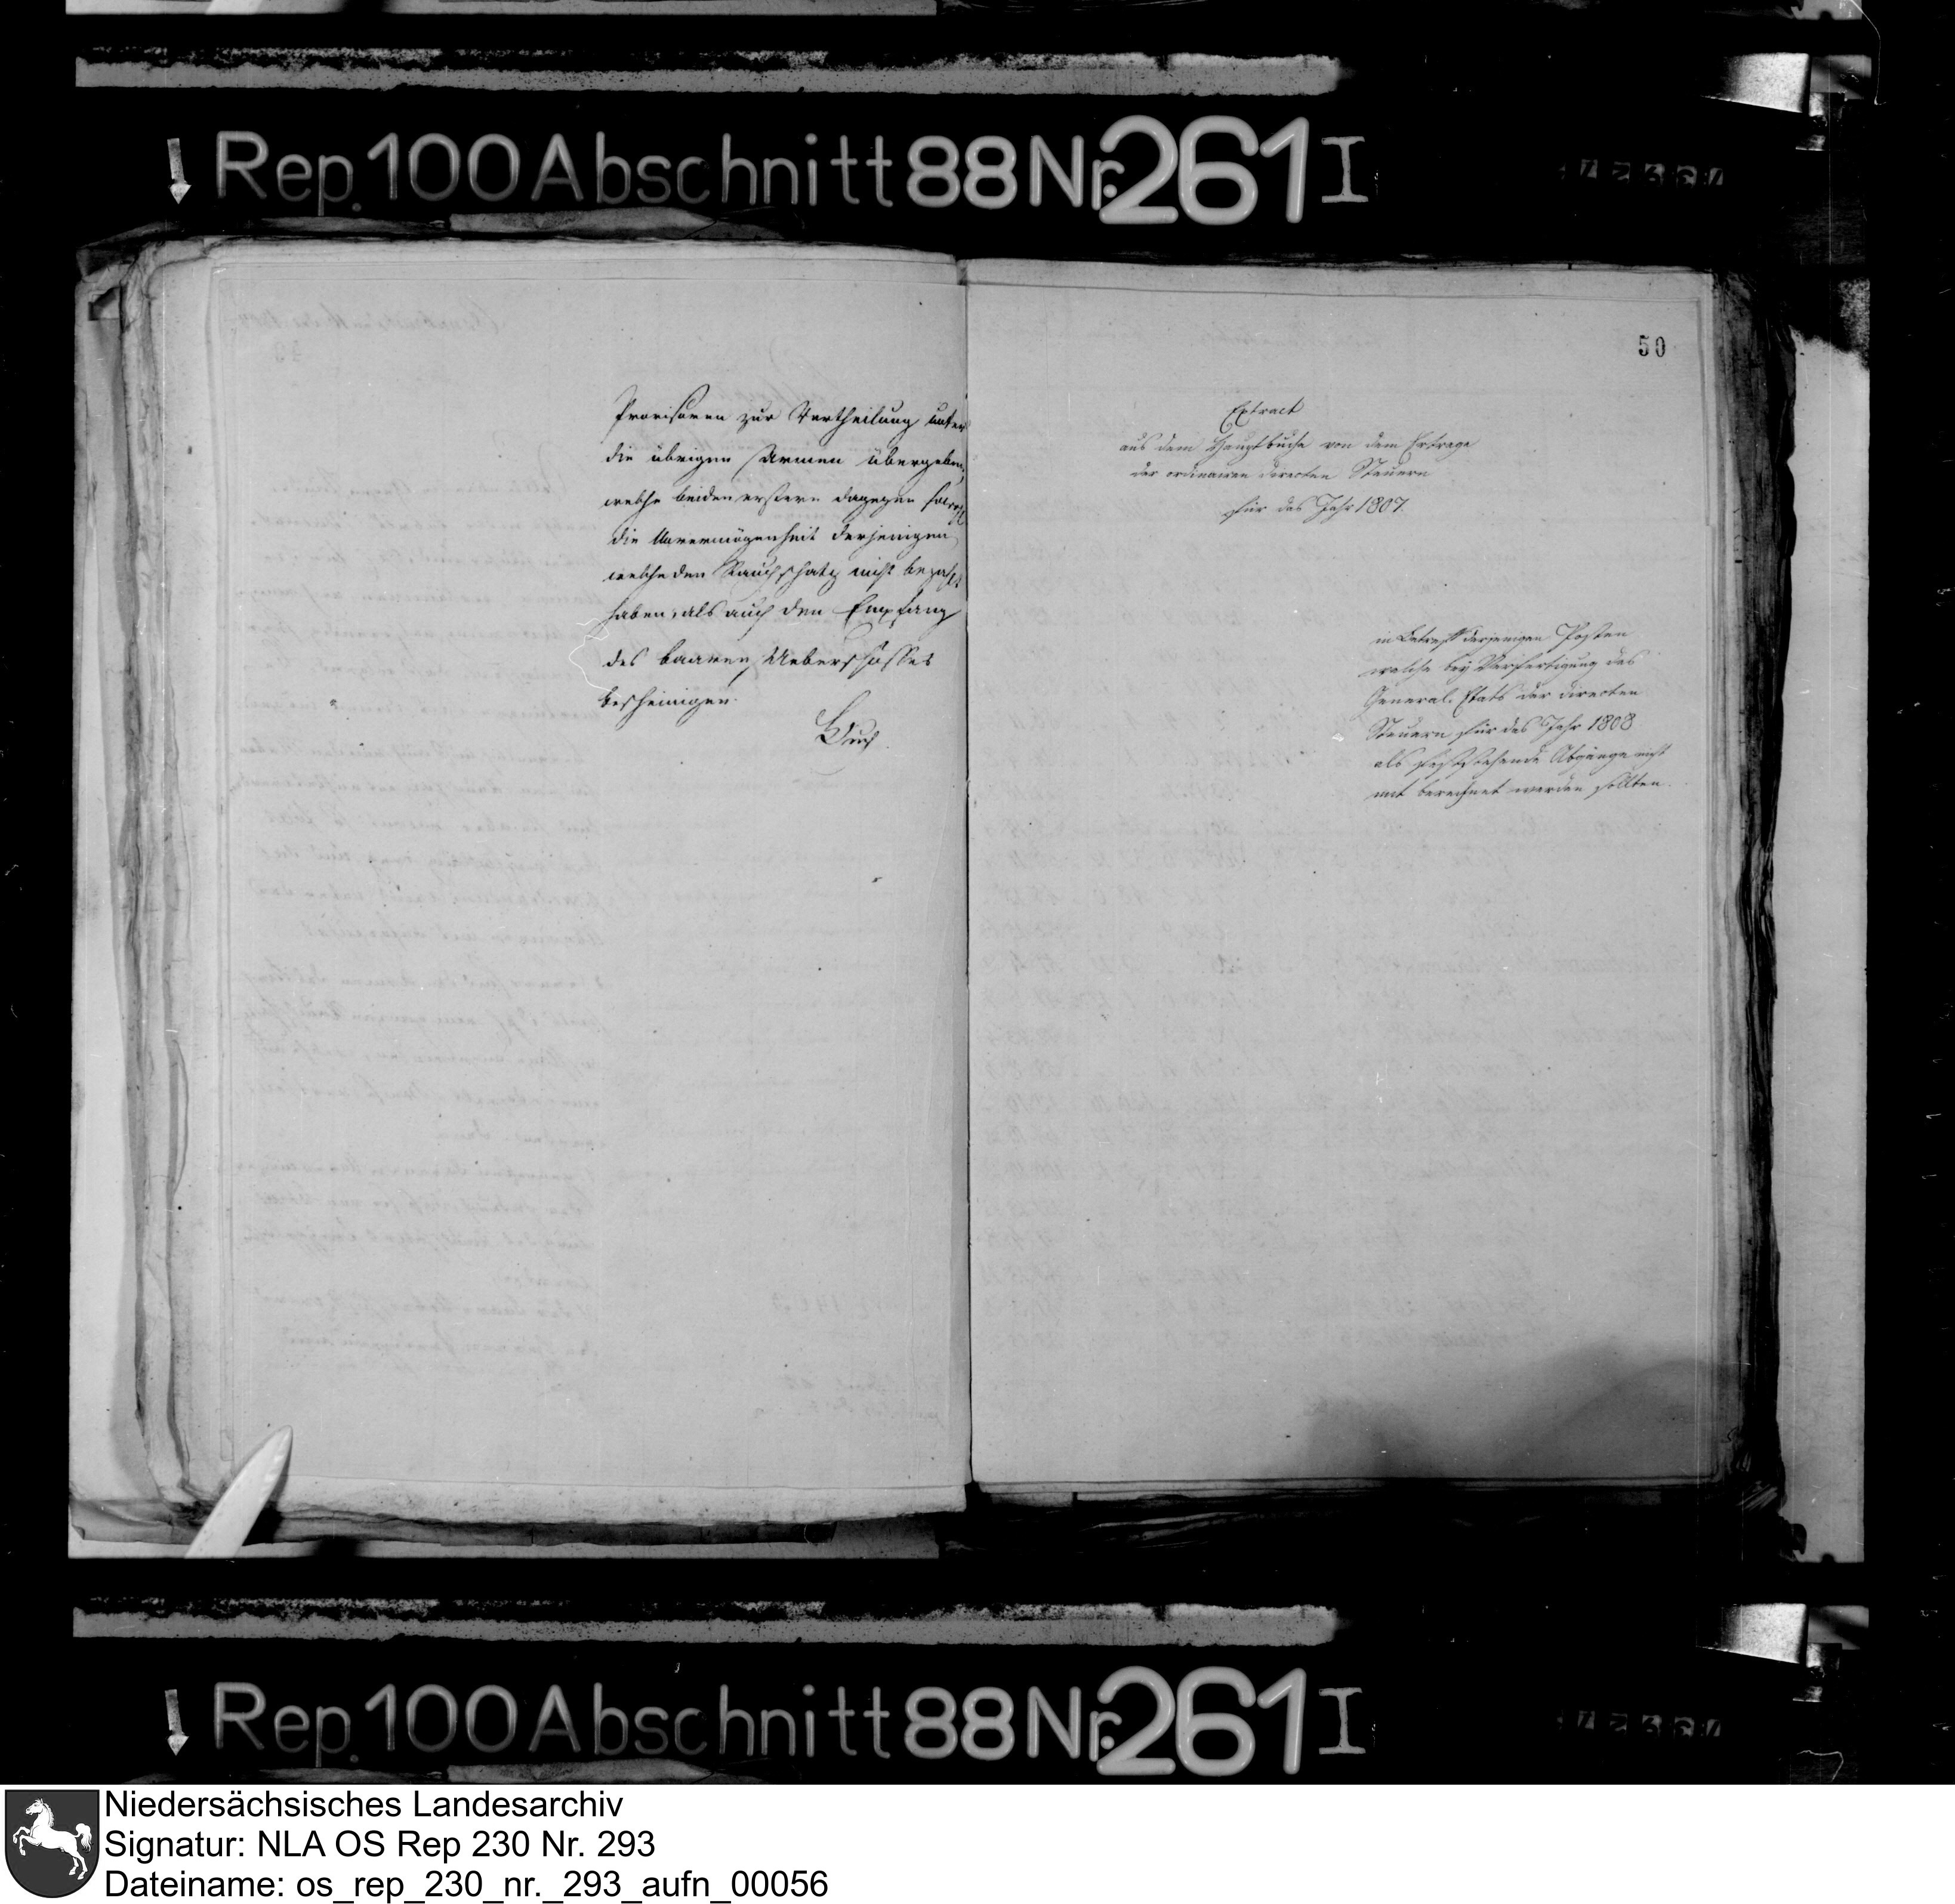 Rep. 100 Abschnitt 88 Nr. 261 I
Provisoren zur Vertheilung unter
die übrigen Armen übergeben,
welche beiden erstern dagegen sowohl
die Unvermögenheit derjenigen
welche den Rauchschatz nicht bezahlt
haben, als auch den Empfang
des baaren Ueberschusses
bescheinigen.
50
Extract
aus dem Hauptbuche von dem Ertrage
der ordinairen directen Steuern
für das Jahr 1807.
in Betreff derjenigen Posten
welche bey Verfertigung des
General-Etats der directen
Steuern für das Jahr 1808
als feststehende Abgänge nicht
mit berechnet werden sollten.
Rep. 100 Abschnitt 88 Nr. 261 I
Niedersächsisches Landesarchiv
Signatur: NLA OS Rep 230 Nr. 293
Dateiname: os_rep_230_nr._293_aufn_00056